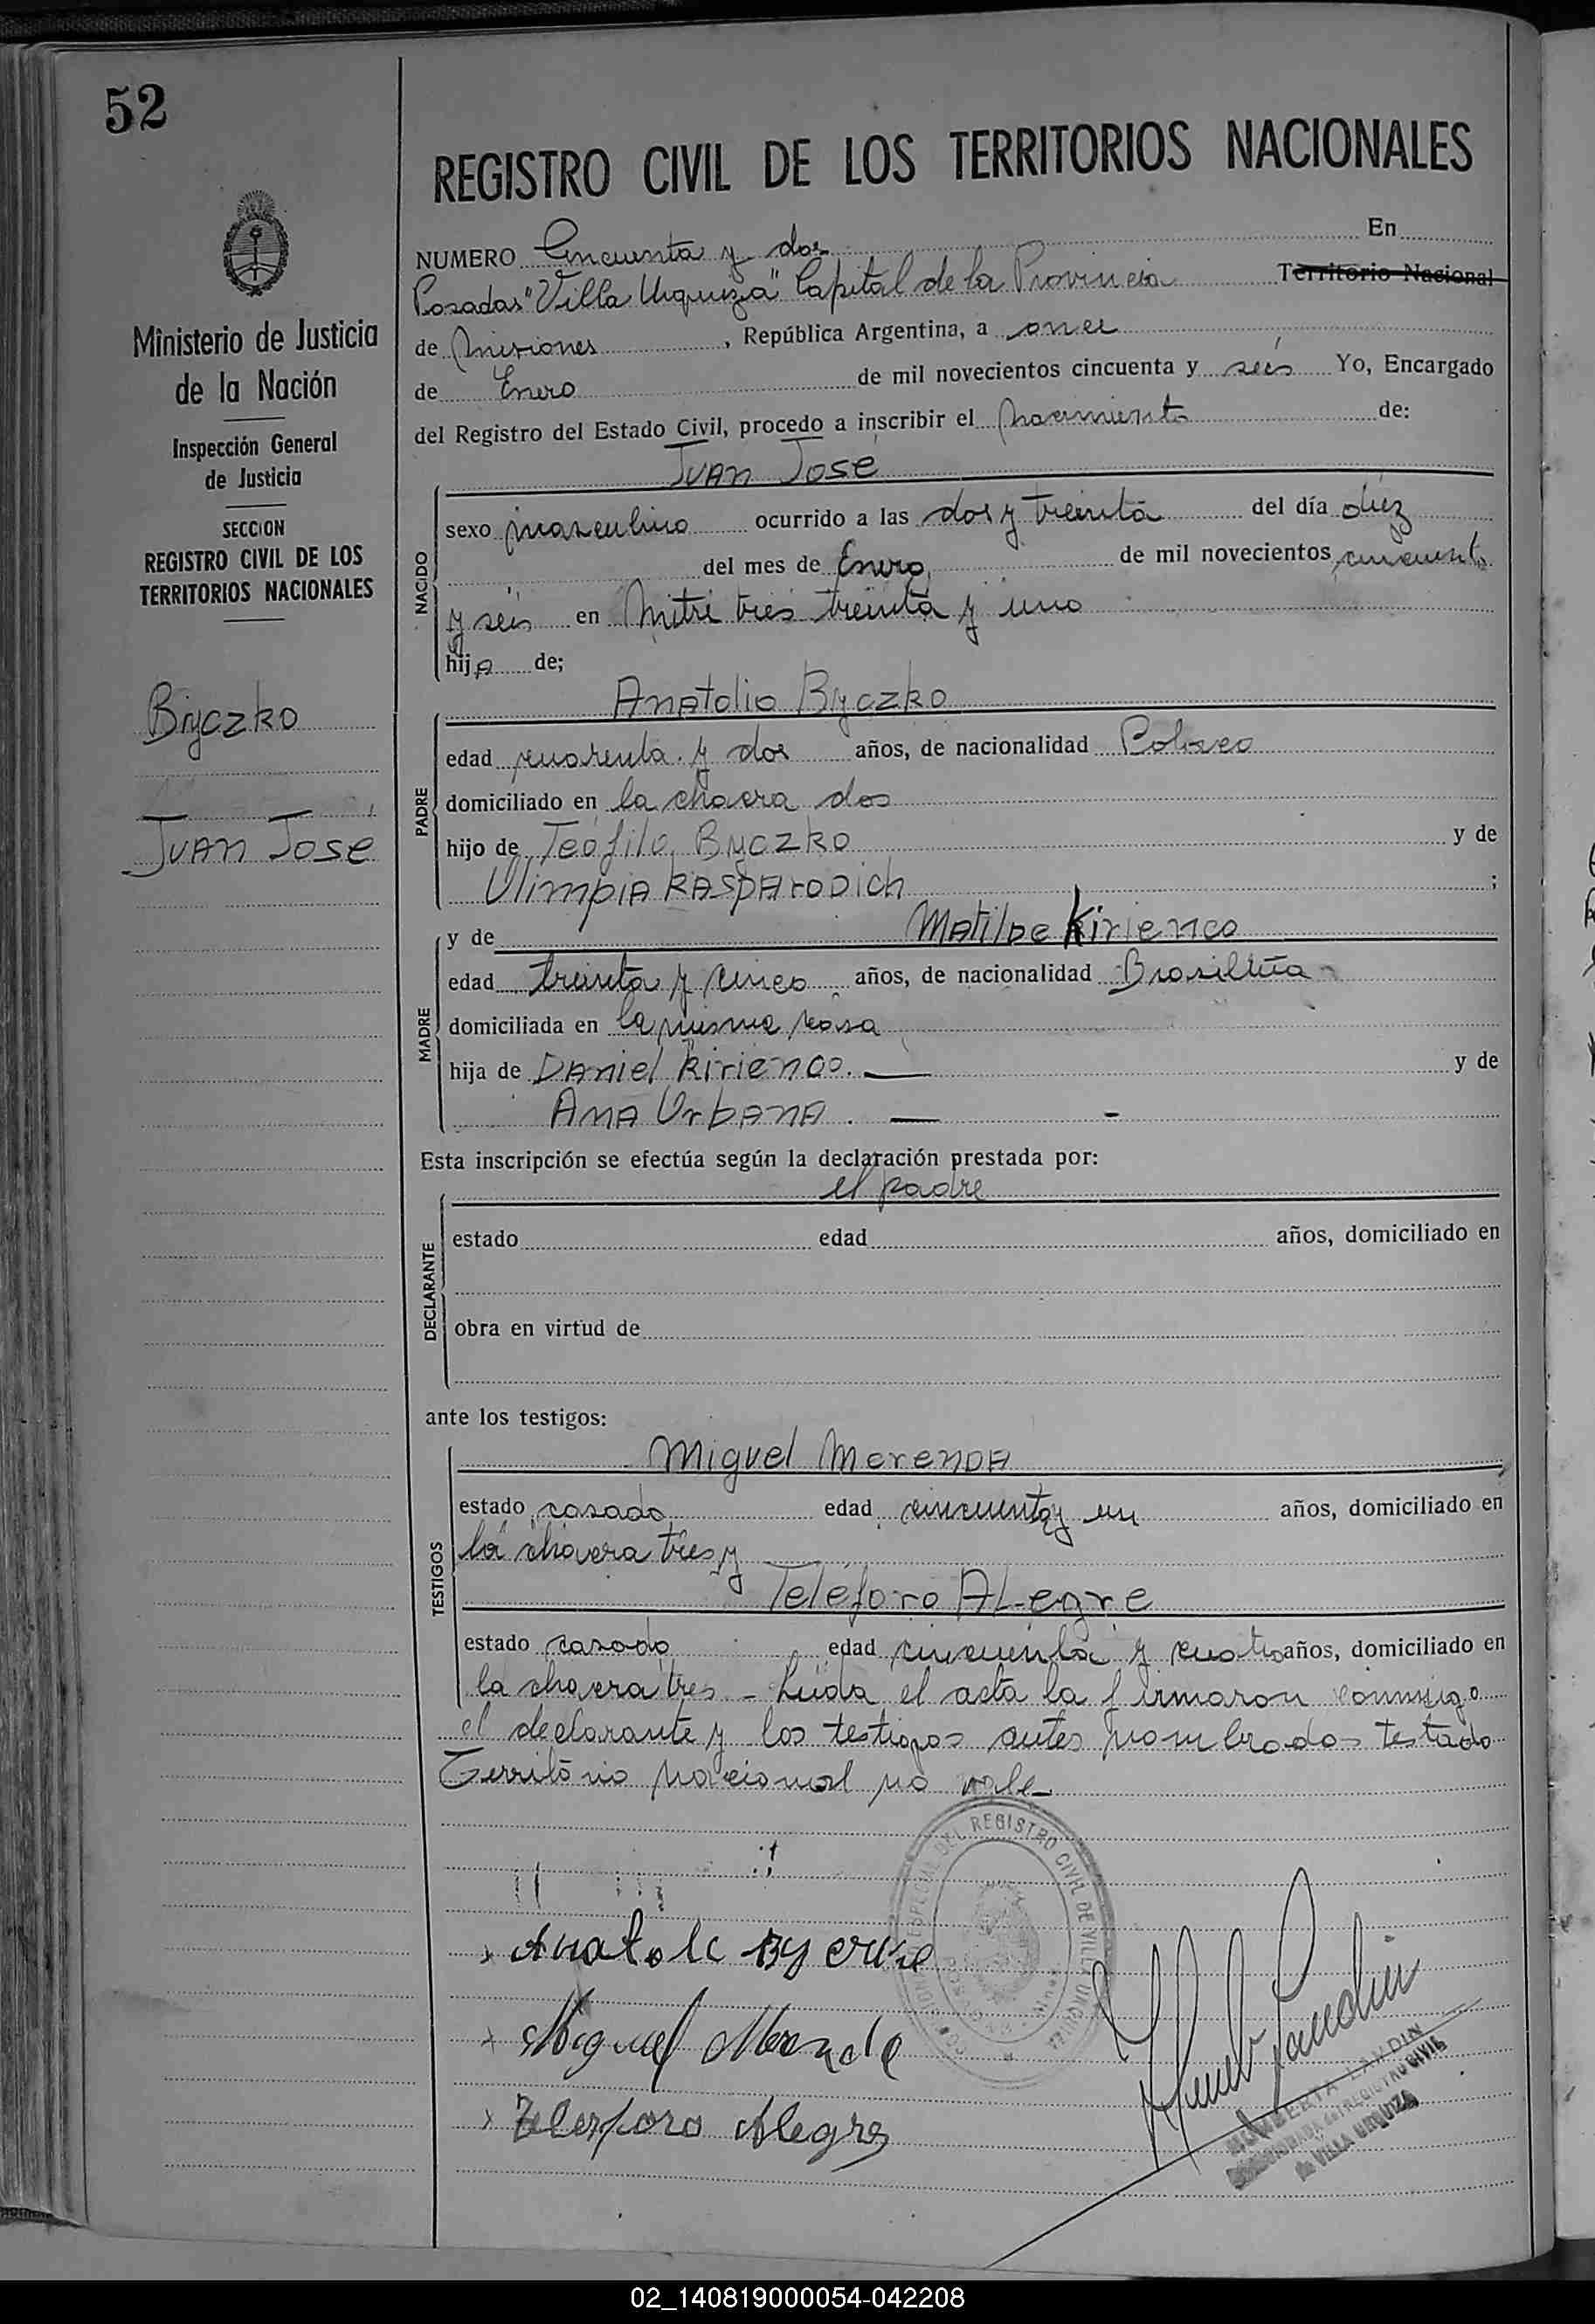 52
REGISTRO CIVIL DE LOS TERRITORIOS NACIONALES
NUMERO Cincuenta y dos En
Posadas "Villa Urquiza" Capital de la Provincia Territorio Nacional
de Misiones, República Argentina, a once
de Enero de mil novecientos cincuenta y seis Yo, Encargado
del Registro del Estado Civil, procedo a inscribir el nacimiento de:
Juan José
NACIDO
sexo masculino ocurrido a las dos y treinta del día diez
del mes de Enero de mil novecientos cincuenta
y seis en Mitre tres treinta y uno
hijo de;
Anatolio Byczko
PADRE
edad cuarenta y dos años, de nacionalidad Polaco
domiciliado en la chacra dos
hijo de Teófilo Byczko y de
Olimpia Kasparodich ;
y de Matilde Kirienco
MADRE
edad treinta y cinco años, de nacionalidad Brasileña
domiciliada en la misma casa
hija de Daniel Kirienco. y de
Ana Urbana. -
Esta inscripción se efectúa según la declaración prestada por:
el padre
DECLARANTE
estado edad años, domiciliado en
obra en virtud de
ante los testigos:
Miguel Merenda
TESTIGOS
estado casado edad cincuenta y un años, domiciliado en
la chacra tres y
Teléforo Alegre
estado casado edad cincuenta y cuatro años, domiciliado en
la chacra tres - Leída el acta la firmaron conmigo
el declarante y los testigos antes nombrados testado
Territorio nacional no vale-
Ministerio de Justicia
de la Nación
Inspección General
de Justicia
SECCION
REGISTRO CIVIL DE LOS
TERRITORIOS NACIONALES
Byczko
Juan José
DEL REGISTRO CIVIL DE VILLA URQUIZA
Miguel Merenda
Telesforo Alegre
LANDIN
REGISTRO CIVIL
de VILLA URQUIZA
02_140819000054-042208